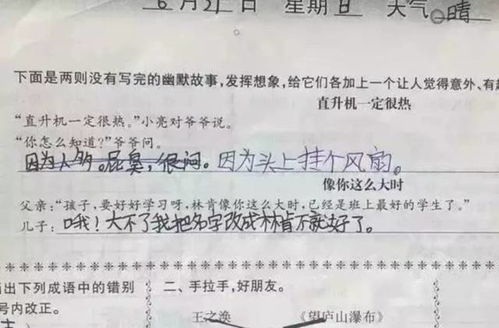 6月21日 星期日 天气 晴
下面是两则没有写完的幽默故事，发挥想象，给它们各加上一个让人觉得意外、有趣
直升机一定很热
“直升机一定很热。”小亮对爷爷说。
“你怎么知道？”爷爷问。
因为人多。屁臭，很闷。因为头上挂个风扇。
像你这么大时
父亲：“孩子，要好好学习呀，林肯像你这么大时，已经是班上最好的学生了。”
儿子：哦！大不了我把名字改成林肯不就好了。
出下列成语中的错别 二、手拉手，好朋友。
号内改正。 王之涣 《望庐山瀑布》